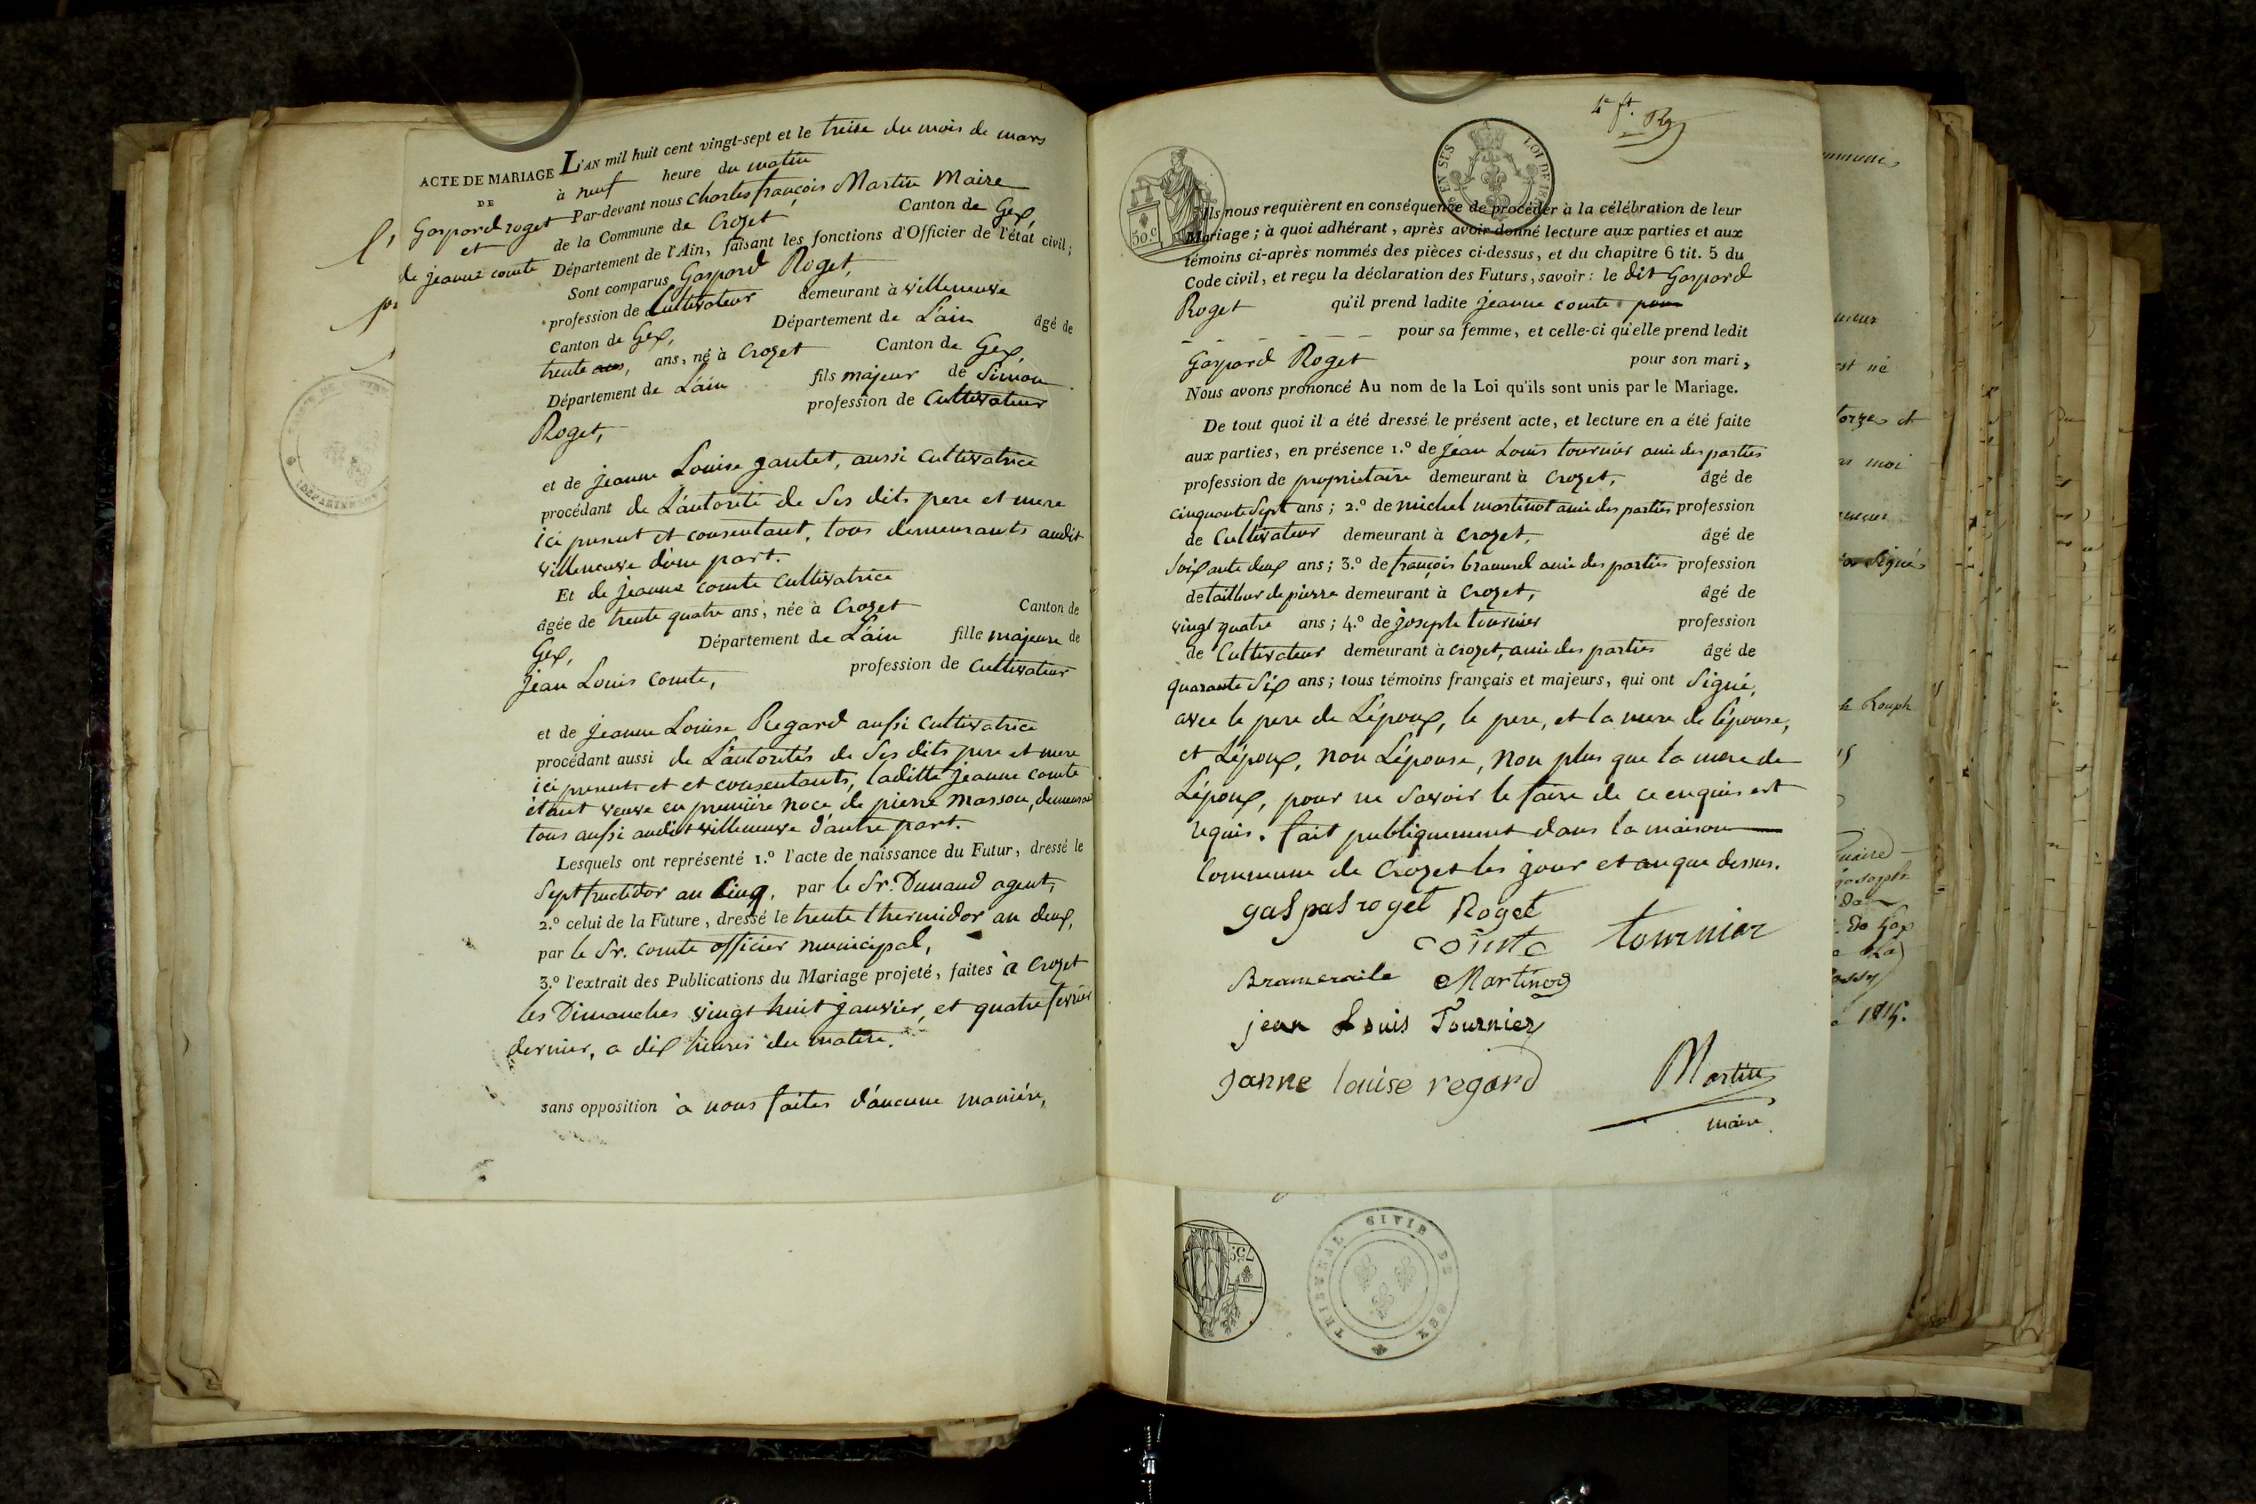 ACTE DE MARIAGE L'AN mil huit cent vingt-sept et le treise du mois de mars
DE
à neuf heure du matin
Gaspard roget
Par-devant nous Charles françois Martin Maire
et
de la Commune de Crozet Canton de Gex,
de jeanne comte
Département de l'Ain, faisant les fonctions d'Officier de l'état civil;
Sont comparus Gaspard Roget,
profession de Cultivateur demeurant à villeneuve
Canton de Gex, Département de Lain âgé de
trente ans, ans, né à Crozet Canton de Gex,
Département de Lain fils majeur de Simon
Roget, profession de Cultivateur
et de jeanne Louise gautet, aussi Cultivatrice
procédant de L'autorité de Ses dits pere et mere
ici present et consentant, tous demeurants audit
villeneuve d'une part.
Et de jeanne comte cultivatrice
âgée de trente quatre ans, née à Crozet Canton de
Gex, Département de L'ain fille majeure de
jean Louis Comte, profession de Cultivateur
et de jeanne Louise Regard aussi Cultivatrice
procédant aussi de L'autorités de Ses dits pere et mere
ici presents et et consentants, laditte jeanne comte
étant veuve en premiére noce de pierre masson, demeurant
tous aussi audit villeneuve d'autre part.
Lesquels ont représenté 1.º l'acte de naissance du Futur, dressé le
Sept fructidor an Cinq, par le Sr. Dunand agent,
2.º celui de la Future, dressé le trente thermidor an deux,
par le Sr. comte officier municipal,
3.º l'extrait des Publications du Mariage projeté, faites à Crozet
les Dimanches vingt huit janvier, et quatre fevrier
dernier, a dix heures du matin.
sans opposition à nous faites d'aucune maniére,
30.C
LOI DE 18
Ils nous requièrent en conséquence de procéder à la célébration de leur
Mariage; à quoi adhérant, après avoir donné lecture aux parties et aux
témoins ci-après nommés des pièces ci-dessus, et du chapitre 6 tit. 5 du
Code civil, et reçu la déclaration des Futurs, savoir: le dit Gaspard
Roget qu'il prend ladite jeanne comte pour
pour sa femme, et celle-ci qu'elle prend ledit
Gaspard Roget pour son mari,
Nous avons prononcé Au nom de la Loi qu'ils sont unis par le Mariage.
De tout quoi il a été dressé le présent acte, et lecture en a été faite
aux parties, en présence 1.º de jean Louis tournier amie des parties
profession de propriétaire demeurant à Crozet, âgé de
cinquante Sept ans; 2.º de michel martinot amie des parties profession
de Cultivateur demeurant à Crozet, âgé de
Soixante deux ans; 3.º de françois bramerel amie des parties profession
de tailleur de pierre demeurant à Crozet, âgé de
vingt quatre ans; 4.º de joseph tournier profession
de Cultivateur demeurant à crozet, amie des parties âgé de
quarante Six ans; tous témoins français et majeurs, qui ont Signé,
avec le pere de L'époux, le pere, et la mere de l'épouse,
et L'époux, non L'épouse, non plus que la mere de
L'époux, pour ne Savoir le faire de ce enquis et
requis. fait publiquement dans la maison
Commune de Crozet les jour et an que dessus.
gaspas roget Roget
comte tournier
Brameraile Martinod
jean Louis Tournier
janne louise regard Martin
maire
TRIBUNAL CIVIL DE GEX